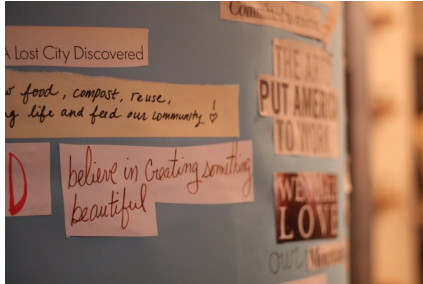 A Lost City Discovered
food, compost, reuse,
life and feed our community!
D
believe in Creating something
beautiful
Committed to
THE ART
PUT AMERICA
TO WORK
LOVE
our Mountain